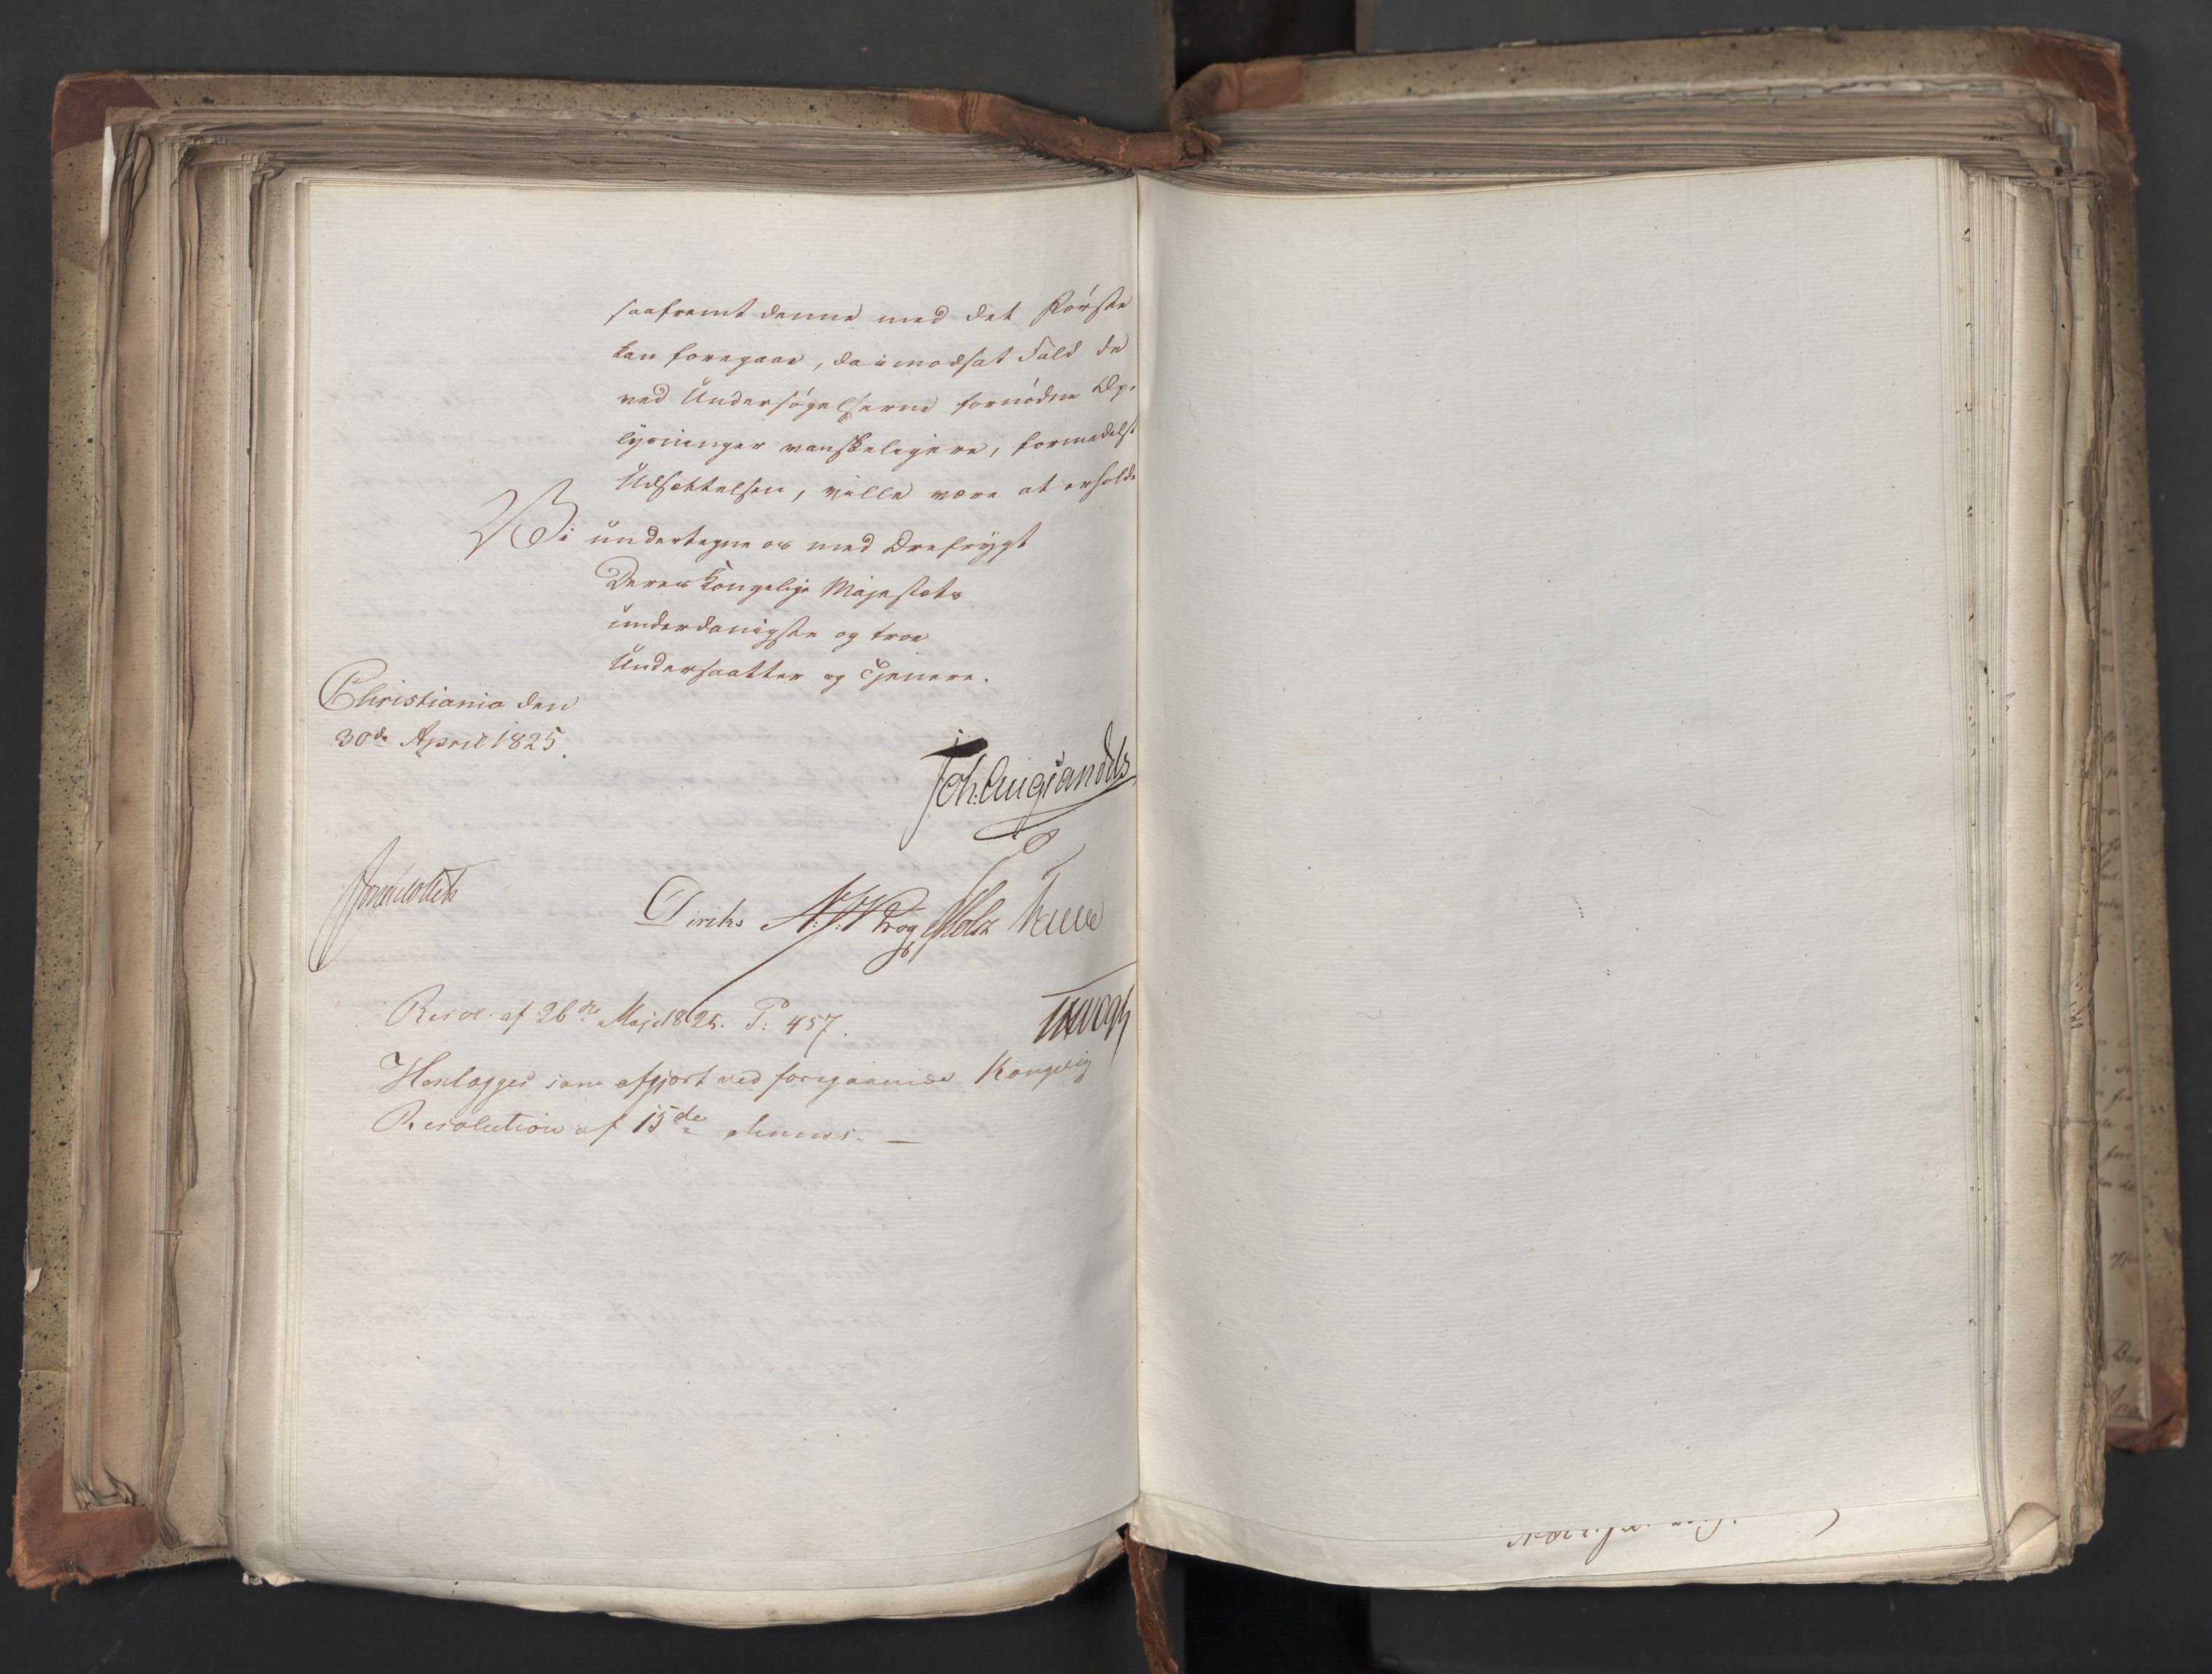 saafremt denne med det Første
kan foregaae, da i modsat Fald de
ved Undersøgelserne fornødne Op-
lysninger vanskeligere, formedelst
Udsættelsen, ville være at erholde
Vi undertegne os med Ærefrygt
Deres Kongelige Majestæts
underdanigste og troe
Undersaatter og Tjenere.
Christiania den
30de April 1825.
Joh: Aug: Sandels
J Collett
Diriks N: J: W Krog JHolst Fasting
Resol. af 26de Maji 1825. P: 457.
Henlægges som afgjort ved foregaaende Kongelig
Resolution af 15de dennes. —